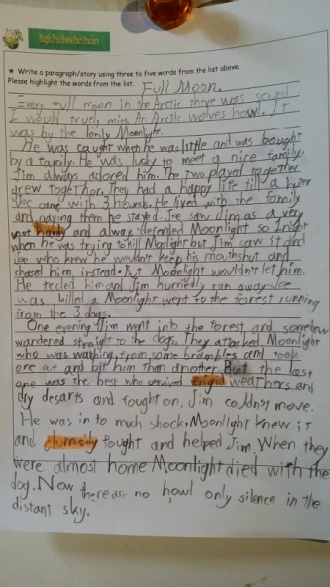 ★ Write a paragraph/story using three to five words from the list above.
Please highlight the words from the list.
Full Moon.
Every full moon in the Arctic there was sound
I would truely miss. An Arctic wolves howl. It
was by the lonly Moonlight.
He was caught when he was little and was bought
by a family. He was lucky to meet a nice family.
Jim always adored him. The two played together
grew together. They had a happy life till a hunter
Joe came with 3 hounds. He lived with the family
and paying them he stayed. Joe saw Jim as a very
and always defended Moonlight so 1 night
when he was trying to kill Moonlight but Jim saw it and
Joe who knew he wouldn't keep his mouth shut and
chased him, instead. But Moonlight wouldn't let him.
He him and Jim hurriedly ran away. Joe
was killed a Moonlight went to the forest running
from the 3 dogs.
One evening Jim went into the forest and somehow
wandered straight to the dogs. They attacked. Moonlight
who was watching from some brambles and took
one out and bit him than another. But the last
one was the best who serived weathers and
dry desarts and fought on, Jim couldn't move.
He was in to much shock. Moonlight knew it
and clumsily fought and helped Jim. When they
were almost home Moonlight died with the
dog. Now there are no howl only silence in the
distant sky.